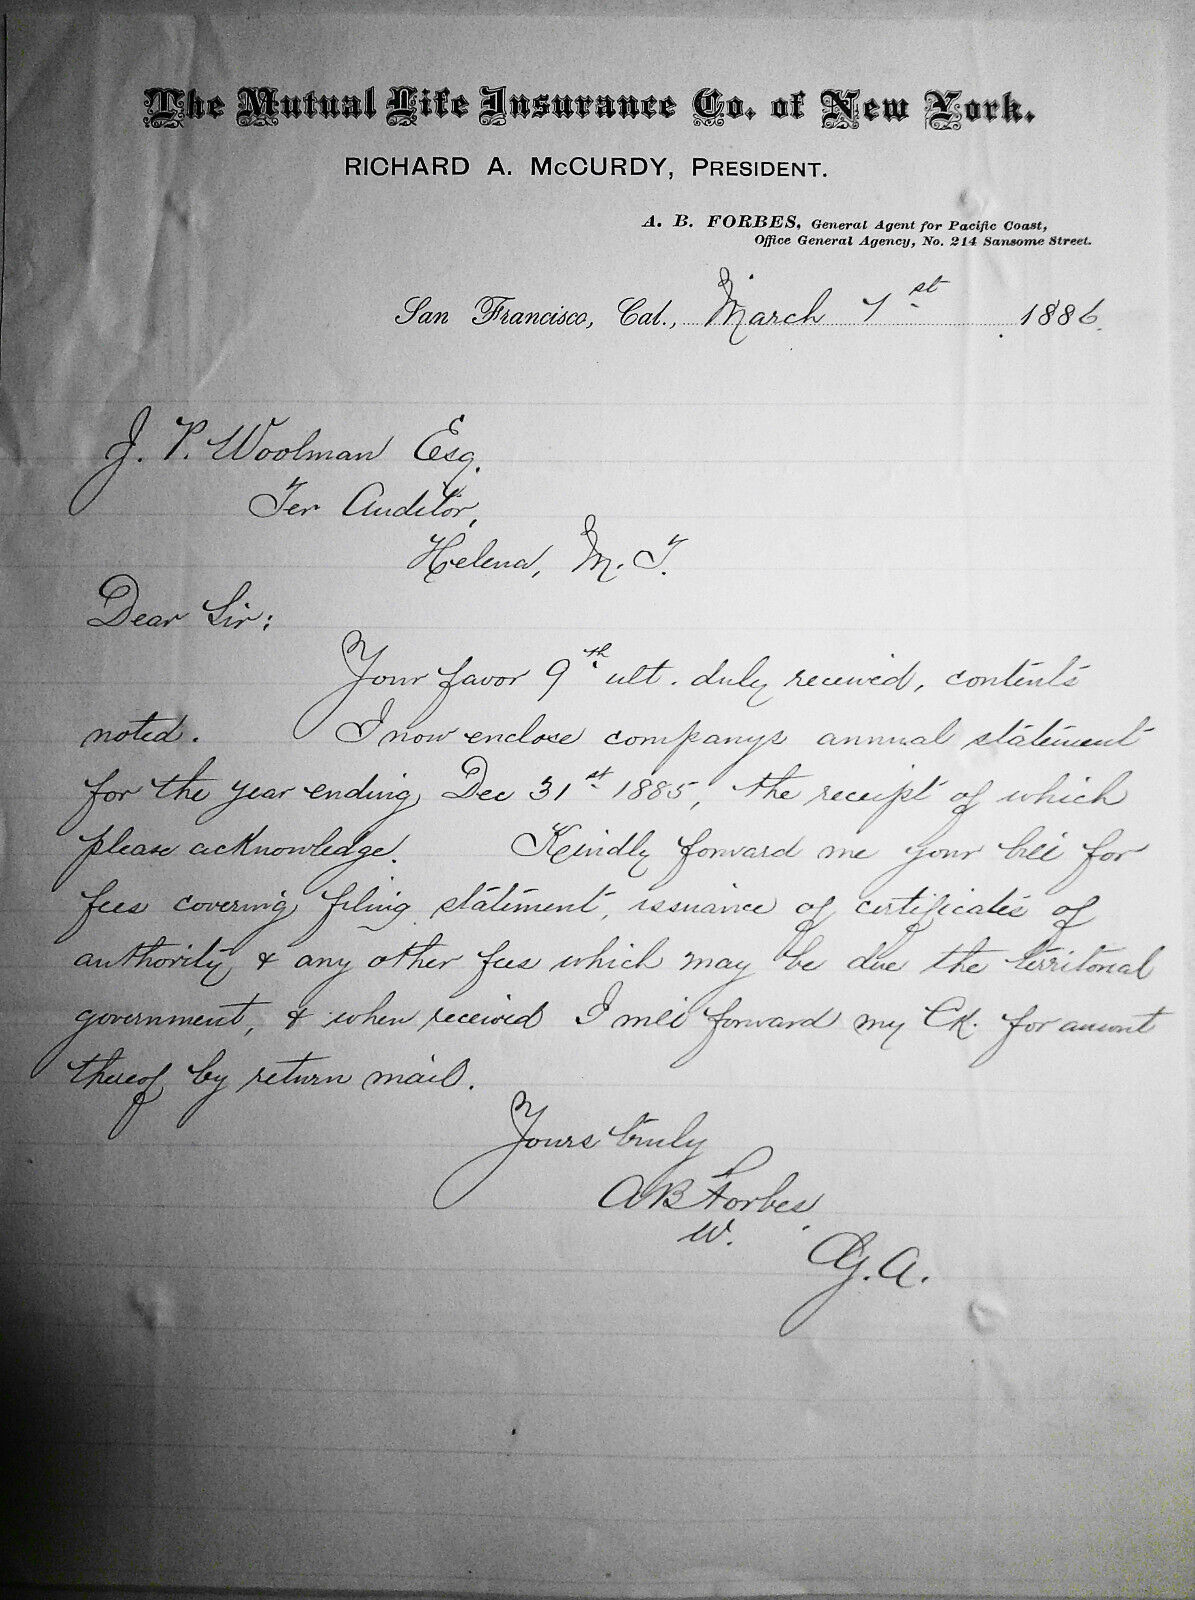 The Mutual Life Insurance Co. of New York.
RICHARD A. McCURDY, PRESIDENT.
A. B. FORBES, General Agent for Pacific Coast,
Office General Agency, No. 214 Sansome Street.
San Francisco, Cal., March 1st 1886.
J. P. Woolman Esq.
Ter Auditor,
Helena, M. T.
Dear Sir:
Your favor 9th ult. duly received, contents
noted. I now enclose companys annual statement
for the year ending Dec 31st 1885, the receipt of which
please acknowledge. Kindly forward me your bill for
fees covering filing statement, issuance of certificates of
authority & any other fees which may be due the territorial
government, & when received I will forward my Ck. for amount
thereof by return mail.
Yours truly
A B Forbes
W.
G. A.